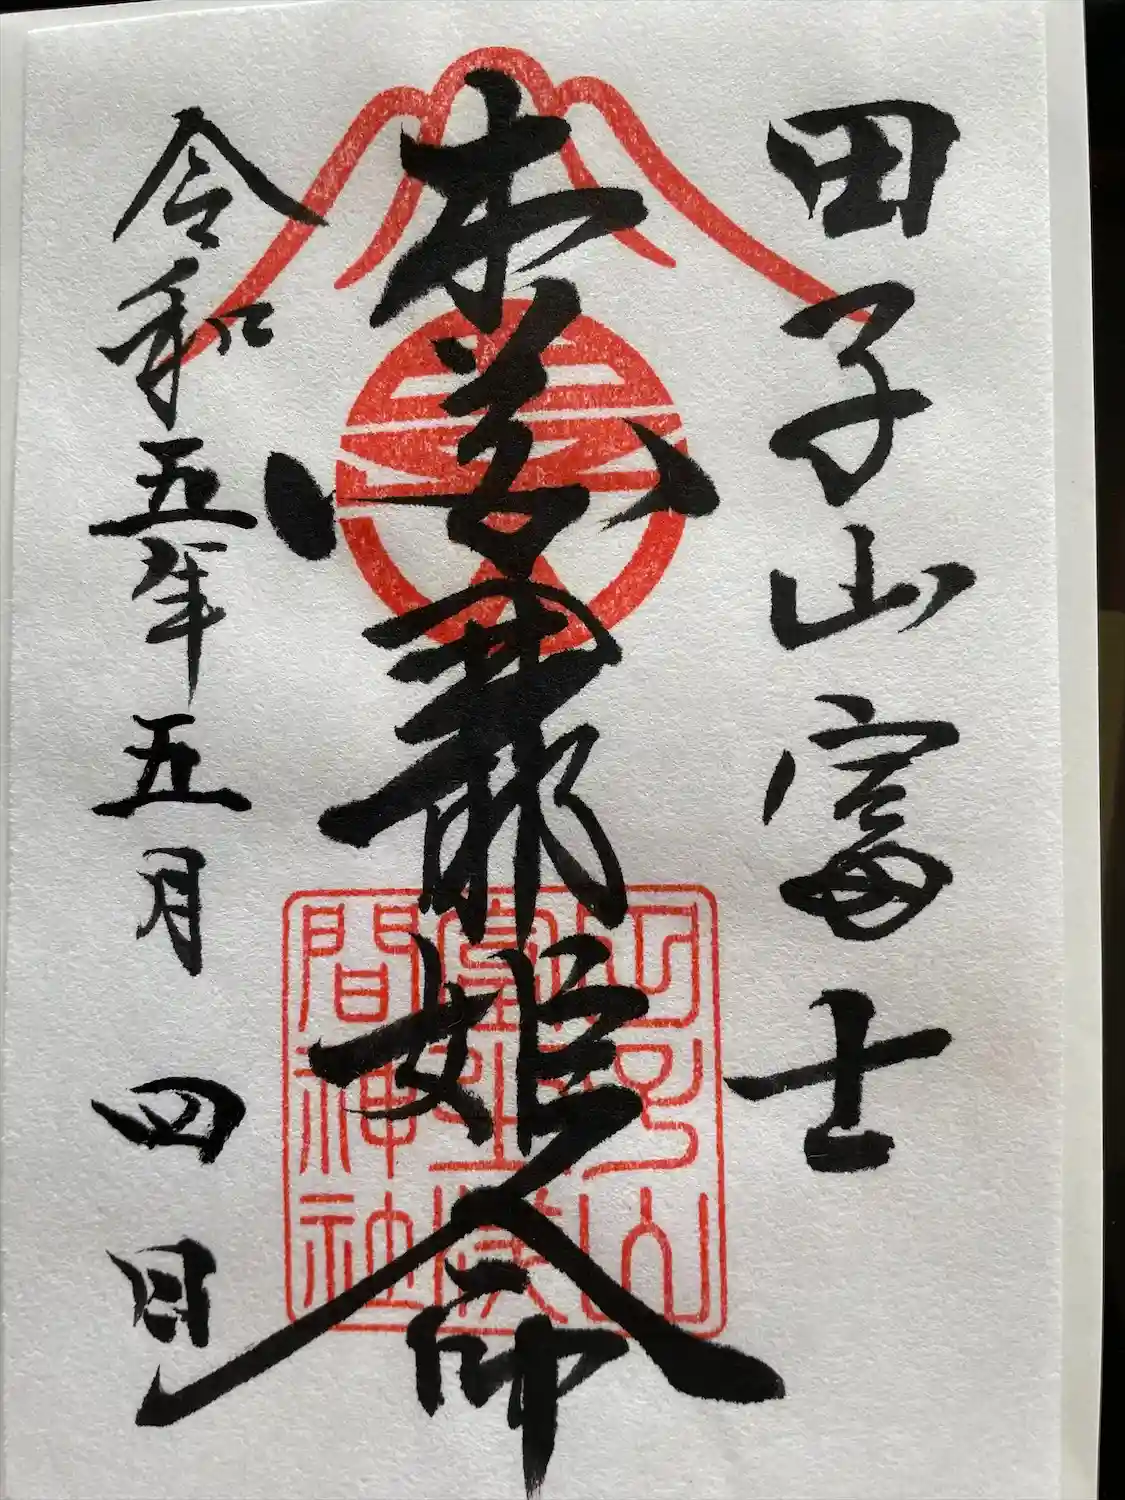 田子山富士
木花開耶姫命
令和五年五月四日
田子山
富士浅
間神社